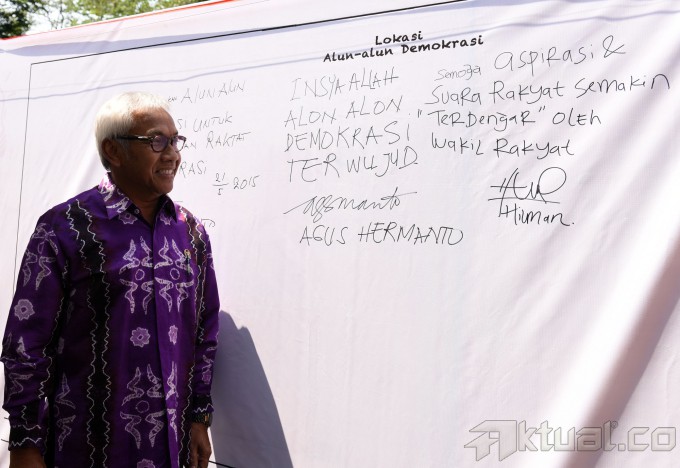 Lokasi
Alun-alun Demokrasi
ALUN ALUN
SI UNTUK
AN RAKYAT
RASI
21/5 2015
INSYA ALLAH
ALON ALON
DEMOKRASI
TERWUJUD
agsmanto
AGUS HERMANTO
Semoga aspirasi &
SUARA RAKYAT SEMAKIN
"TERDENGAR" OLEH
WAKIL RAKYAT
Hilman.
Aktual.co